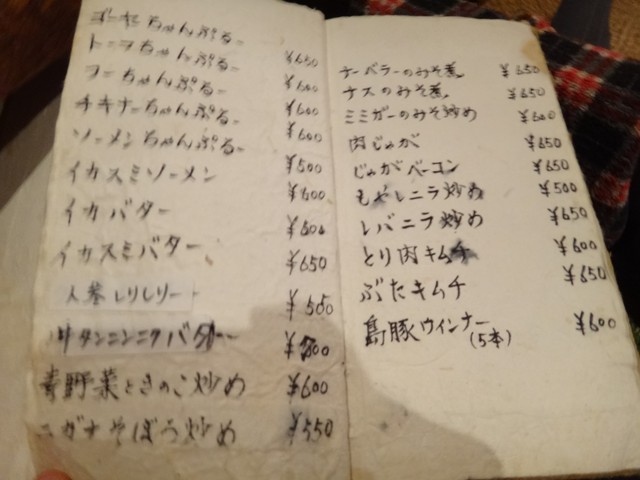 ゴーヤーちゃんぷるー ¥650
トーフちゃんぷるー ¥600
フーちゃんぷるー ¥600
チキナーちゃんぷるー ¥600
ソーメンちゃんぷるー ¥500
イカスミソーメン ¥600
イカバター ¥600
イカスミバター ¥650
人参しりしりー ¥500
¥800
青野菜ときのこ炒め ¥600
ニガナそぼろ炒め ¥550
ナーベラーのみそ煮 ¥650
ナスのみそ煮 ¥650
ミミガーのみそ炒め ¥600
肉じゃが ¥650
じゃがベーコン ¥650
もやしニラ炒め ¥500
レバニラ炒め ¥650
とり肉キムチ ¥600
ぶたキムチ ¥650
島豚ウインナー ¥600
(5本)